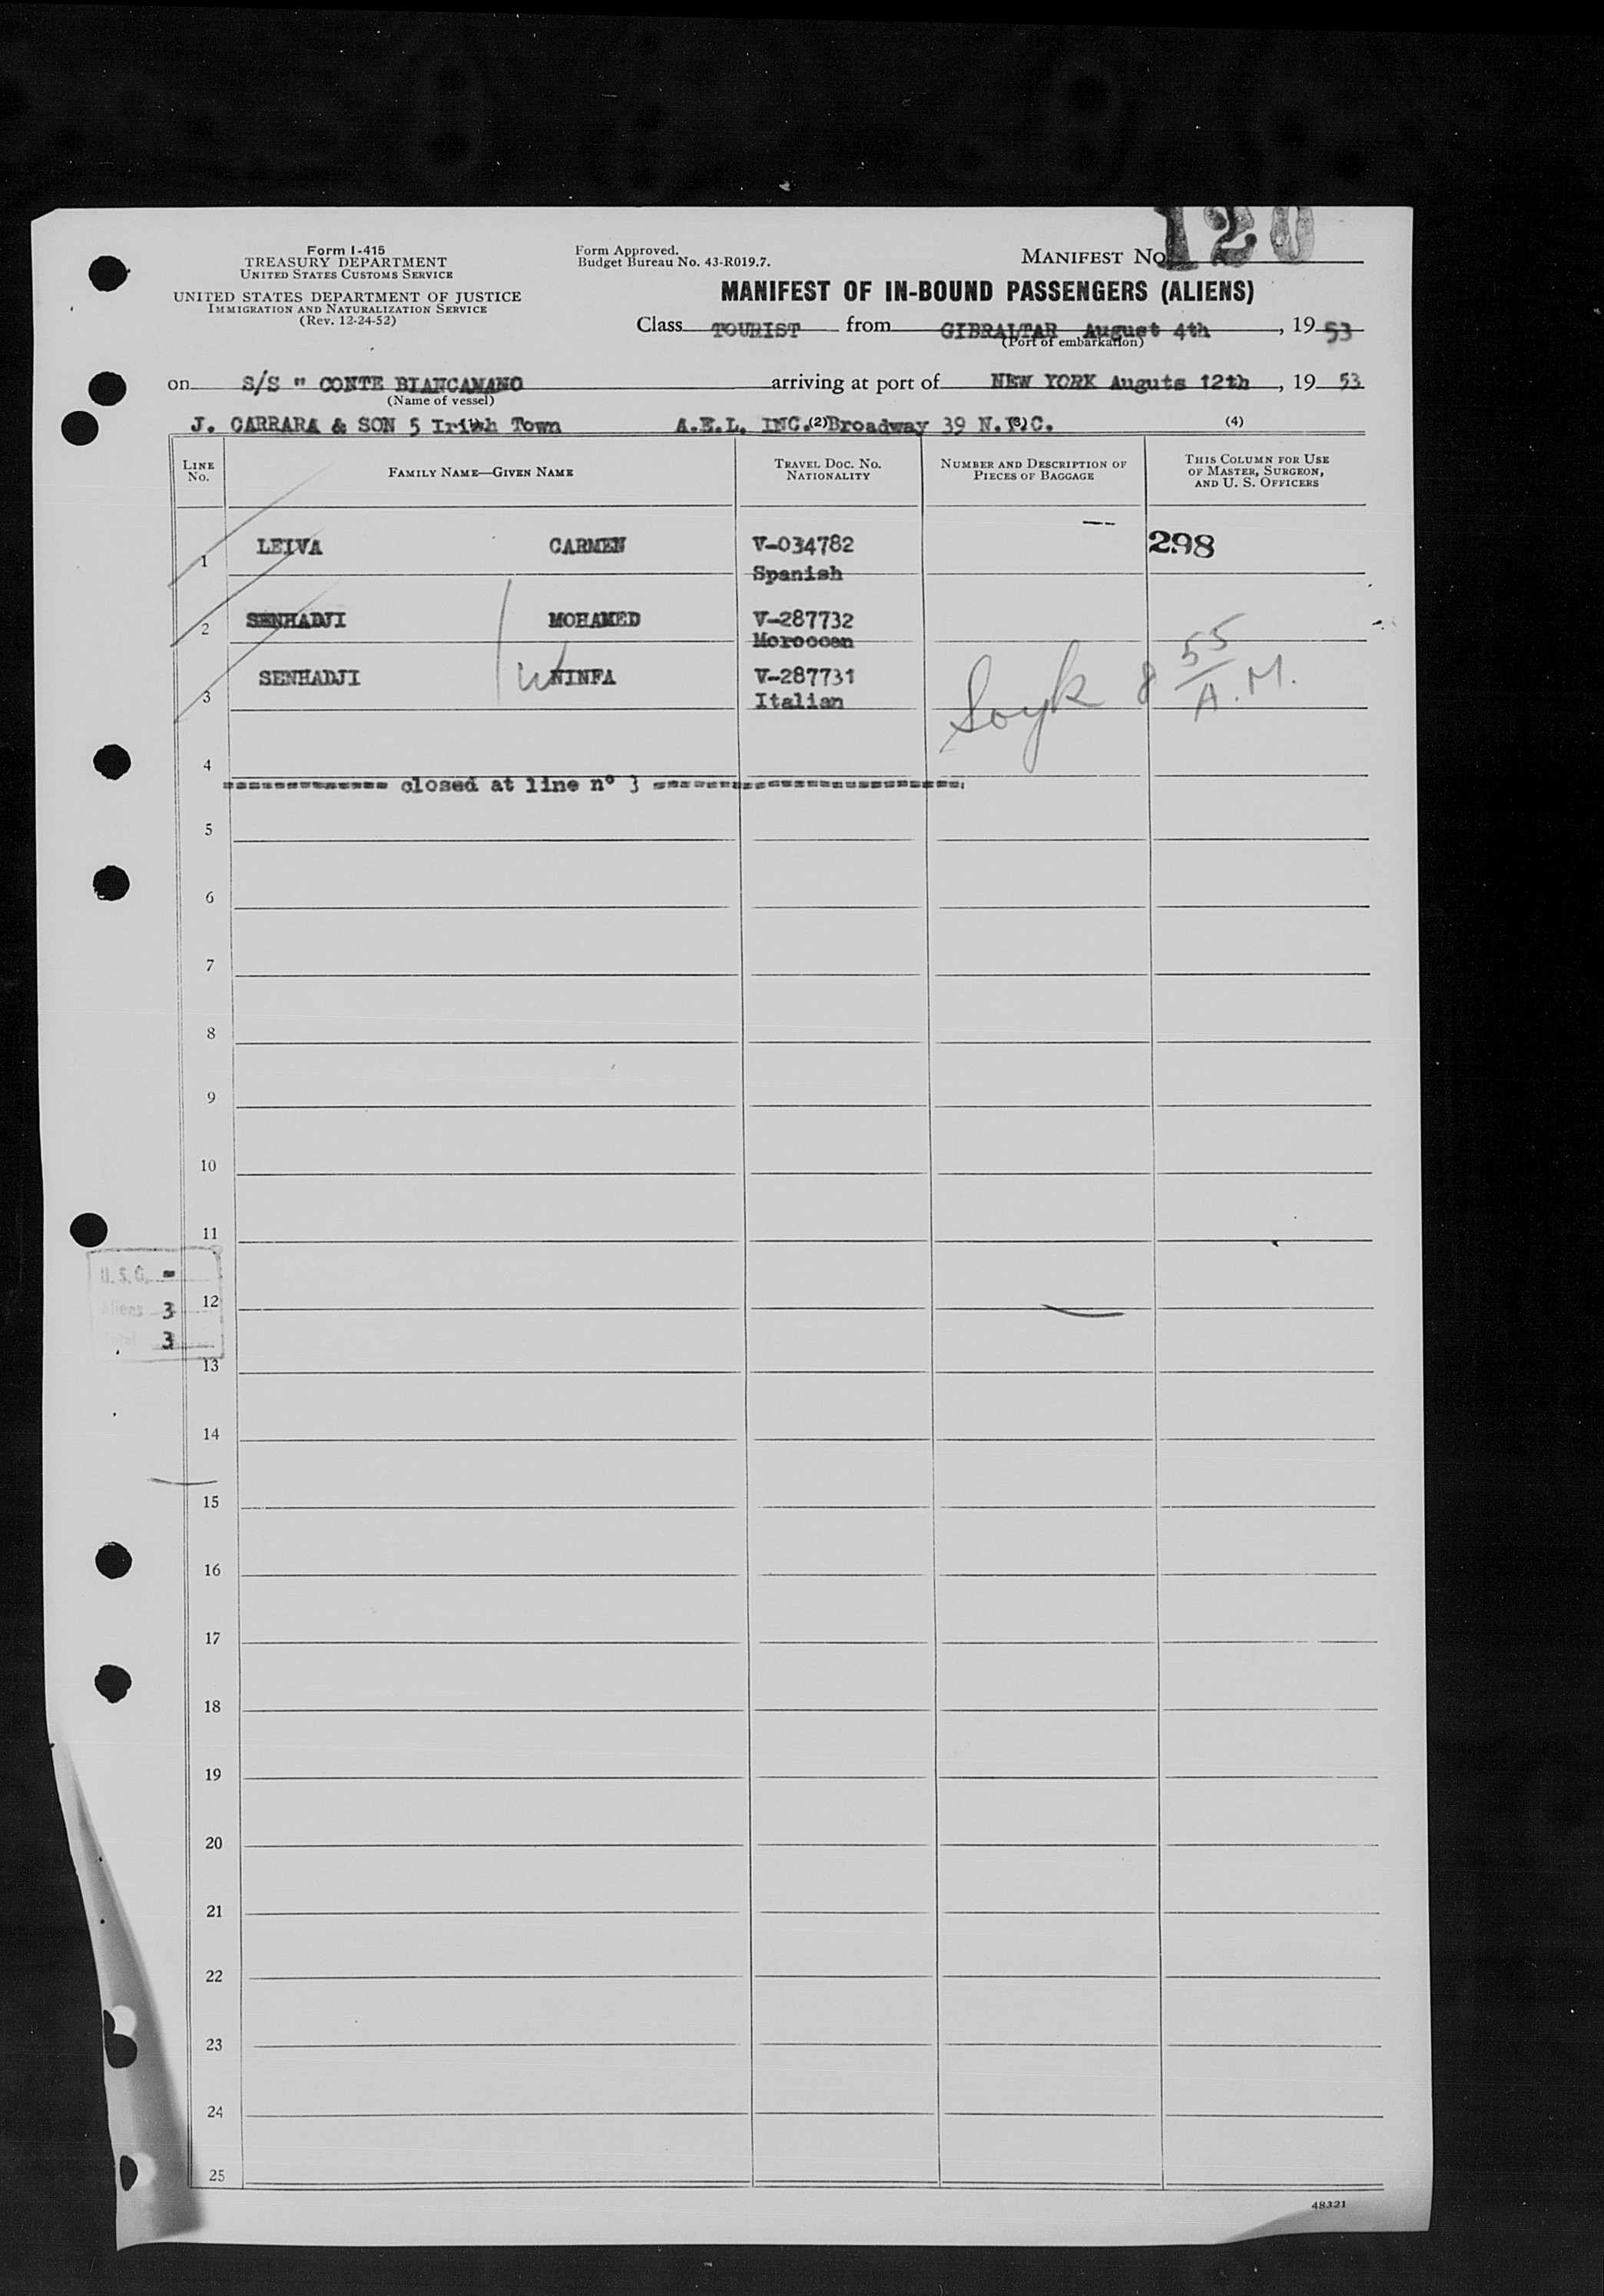 Form I-415
TREASURY DEPARTMENT
UNITED STATES CUSTOMS SERVICE
UNITED STATES DEPARTMENT OF JUSTICE
IMMIGRATION AND NATURALIZATION SERVICE
(Rev. 12-24-52)
Form Approved.
Budget Bureau No. 43-R019.7.
MANIFEST No. 120
MANIFEST OF IN-BOUND PASSENGERS (ALIENS)
Class TOURIST from GIBRALTAR August 4th, 1953
(Port of embarkation)
on S/S " CONTE BIANCAMANO arriving at port of NEW YORK Auguts 12th, 19 53
(Name of vessel)
J. CARRARA & SON 5 Irish Town A.E.L. INC. (2) Broadway 39 N.Y.C. (3) (4)
LINE No. FAMILY NAME—GIVEN NAME TRAVEL DOC. NO. NATIONALITY NUMBER AND DESCRIPTION OF PIECES OF BAGGAGE THIS COLUMN FOR USE OF MASTER, SURGEON, AND U. S. OFFICERS
1 LEIVA CARMEN V-034782 298
Spanish
2 SENHADJI MOHAMED V-287732
Moroccan
3 SENHADJI NINFA V-287731
Italian
8 55 A.M.
4
closed at line nº 3
5
6
7
8
9
10
11
U.S.C. -
12
Aliens 3
Total 3
13
14
15
16
17
18
19
20
21
22
23
24
25
48321